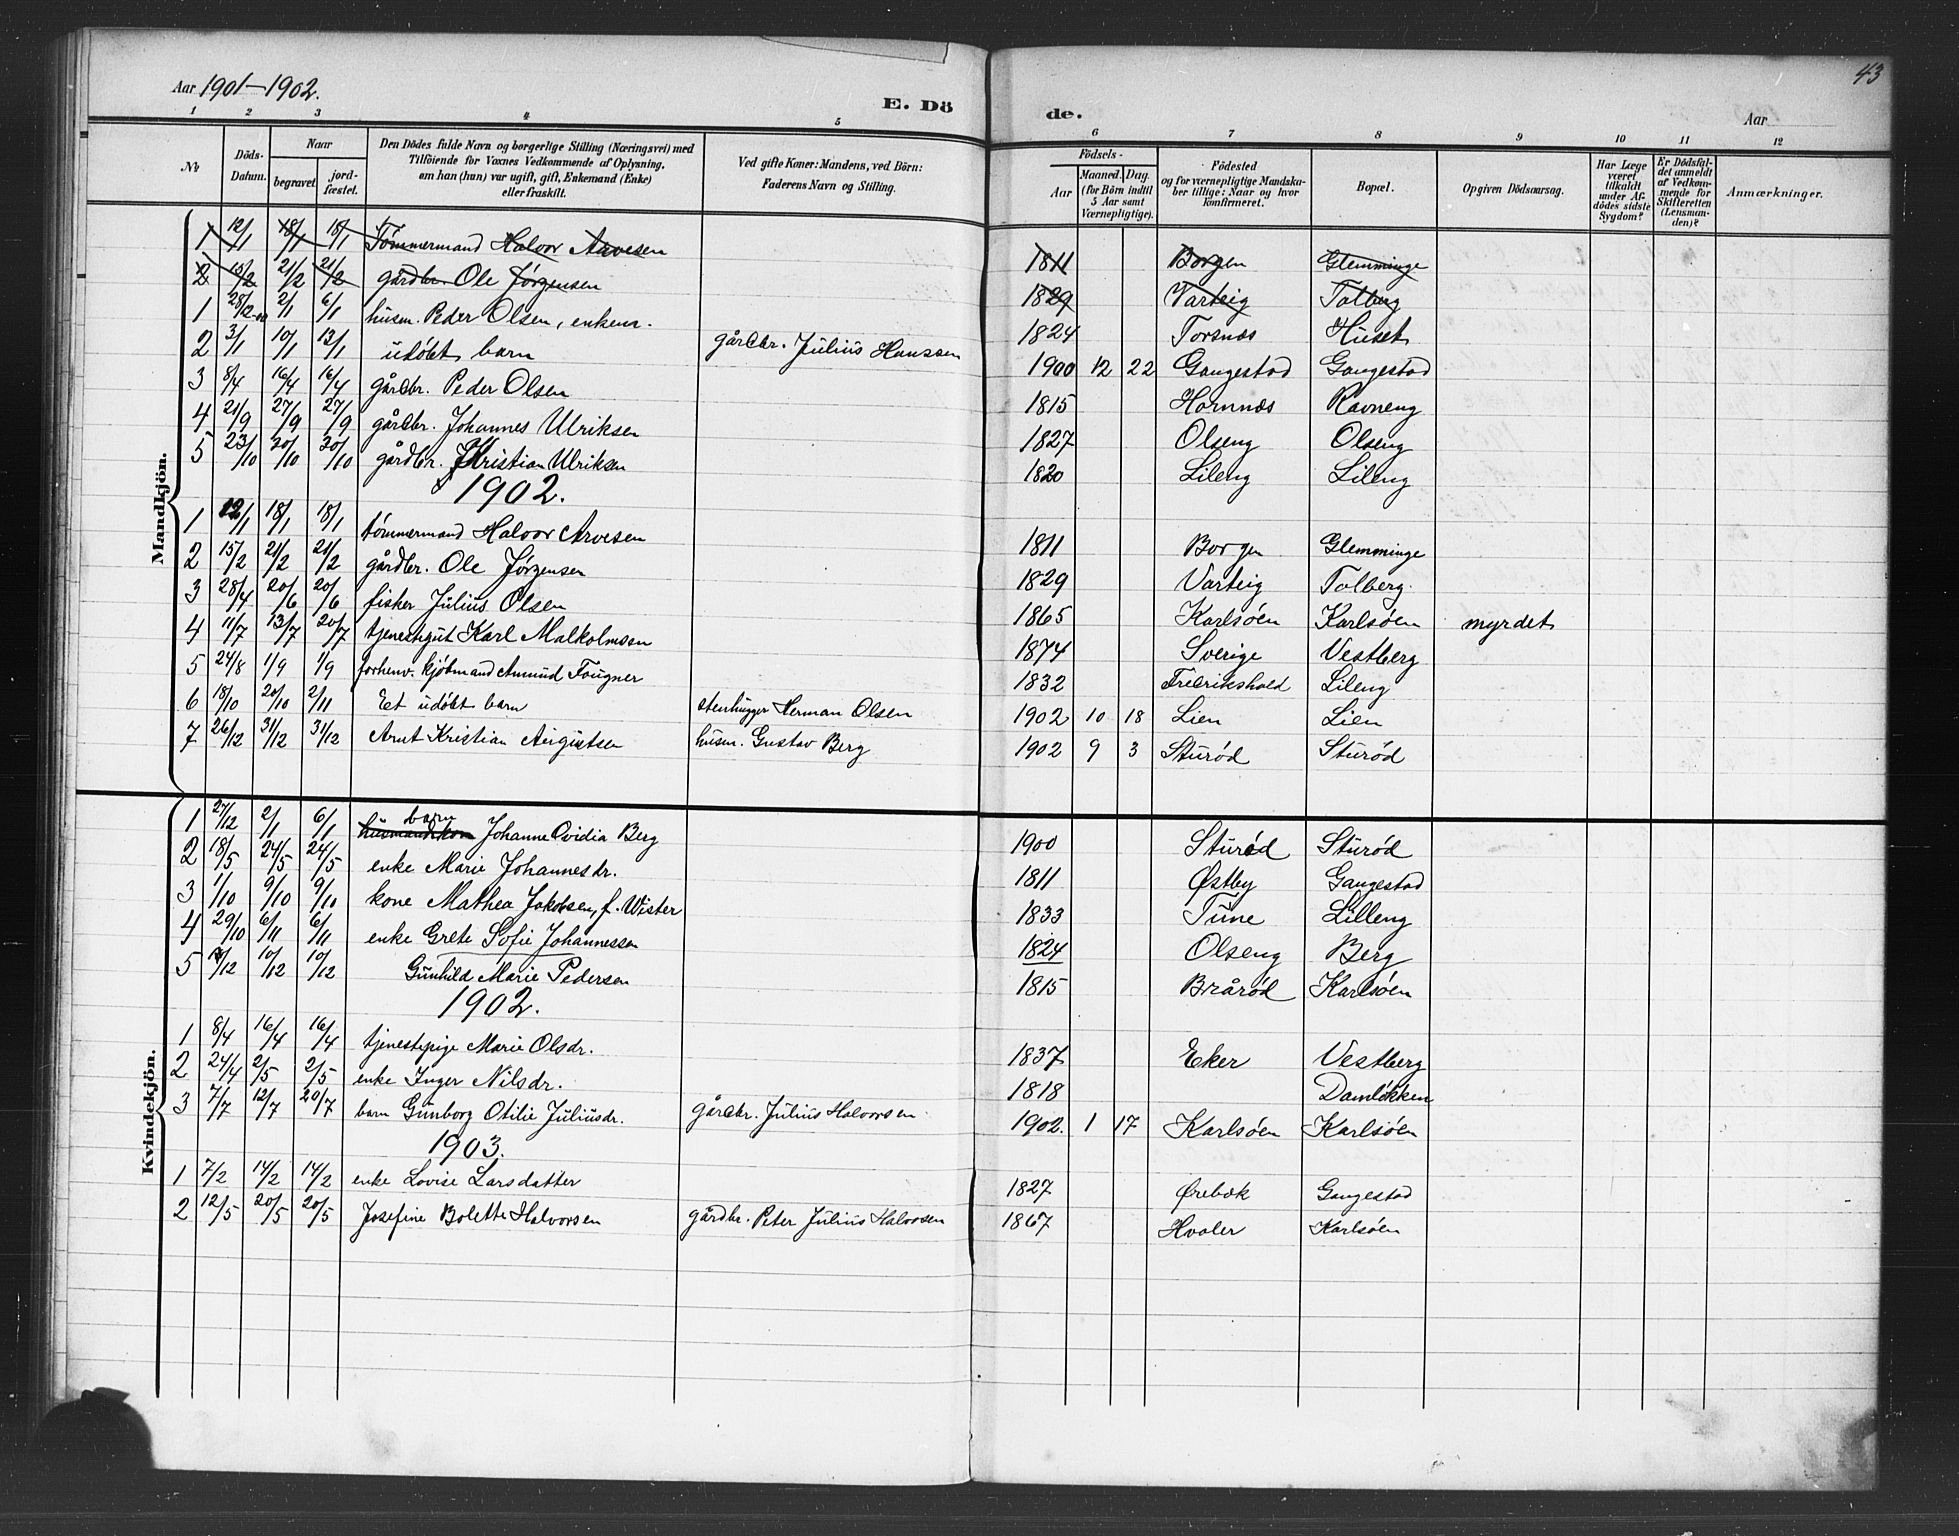 Aar 1901-1902. E. Dö de. Aar 43
1 2 3 4 5 6 7 8 9 10 11 12
No Döds-Datum. Naar begravet jordfæstet. Den Dödes fulde Navn og borgerlige Stilling (Næringsvei) med Tilföiende för Voxnes Vedkommende af Oplysning, om han (hun) var ugift, gift, Enkemand (Enke) eller fraskilt. Ved gifte Koner: Mandens, ved Börn: Faderens Navn og Stilling. Födsels- Aar Maaned. Dag. (for Börn indtil 5 Aar samt Værnepligtige). Födested og for værnepligtige Mandskaber tillige: Naar og hvor konfirmeret. Bopæl. Opgiven Dödsaarsag. Har Læge været tilkaldt under Afdödes sidste Sygdom? Er Dödsfaldet anmeldt af Vedkommende for Skifteretten (Lensmanden)? Anmærkninger.
Mandkjön.
1 12/1 18/1 18/1 Tømmermand Halvor Aavesen 1811 Borgen Glemminge
2 15/2 21/2 21/2 gårdbr. Ole Jørgensen 1829 Varteig Tolberg
1 28/12-00 2/1 6/1 husm. Peder Olsen, enkem. 1824 Torsnæs Huset
2 3/1 10/1 13/1 udøbt barn gårdbr. Julius Hanssen 1900 12 22 Gangestad Gangestad
3 8/4 16/4 16/4 gårdbr. Peder Olsen 1815 Hornnæs Ravneng
4 21/9 27/9 27/9 gårdbr. Johannes Ulriksen 1827 Olseng Olseng
5 23/10 30/10 30/10 gårdbr. Kristian Ulriksen 1820 Lileng Lileng
1902.
1 12/1 18/1 18/1 tømmermand Halvor Arvesen 1811 Borgen Glemminge
2 15/2 21/2 21/2 gårdbr. Ole Jørgensen 1829 Varteig Tolberg.
3 28/4 20/6 20/6 fisker Julius Olsen 1865 Karlsøen Karlsøen myrdet
4 11/7 13/7 20/7 tjenestegut Karl Malkolmsen 1874 Sverige Vestberg
5 24/8 1/9 1/9 forhenv. kjøbmand Amund Fougner 1832 Fredrikshald Lileng
6 18/10 20/10 2/11 Et udøbt barn stenhugger Herman Olsen 1902 10 18 Lien Lien
7 26/12 31/12 31/12 Arnt Kristian Augustsen husm. Gustav Berg 1902 9 3 Sturød Sturød
Kvindekjön.
1 27/12 2/1 6/1 husmandskon barn Johanne Ovidia Berg 1900 Sturød Sturød
2 18/5 24/5 24/5 enke Marie Johannesdr. 1811 Østby Gangestad
3 1/10 9/10 9/10 kone Mathea Jakobsen, f. Wister 1833 Tune Lilleng
4 29/10 6/11 6/11 enke Grete Sofie Johannessen 1824 Olseng Berg
5 /12 10/12 10/12 Gunhild Marie Pedersen 1815 Brårød Karlsøen
1902.
1 8/4 16/4 16/4 tjenestepige Marie Olsdr. 1837 Eker Vestberg
2 24/4 2/5 2/5 enke Inger Nilsdr. 1818 Damløkken
3 7/7 12/7 20/7 barn Gunborg Otilie Juliusdr. gårdbr. Julius Halvorsen 1902. 1 17 Karlsøen Karlsøen
1903.
1 7/2 14/2 14/2 enke Lovise Larsdatter 1827 Ørebæk Gangestad
2 12/5 20/5 20/5 Josefine Bolette Halvorsen gårdbr. Peter Julius Halvorsen 1867 Hvaler Karlsøen